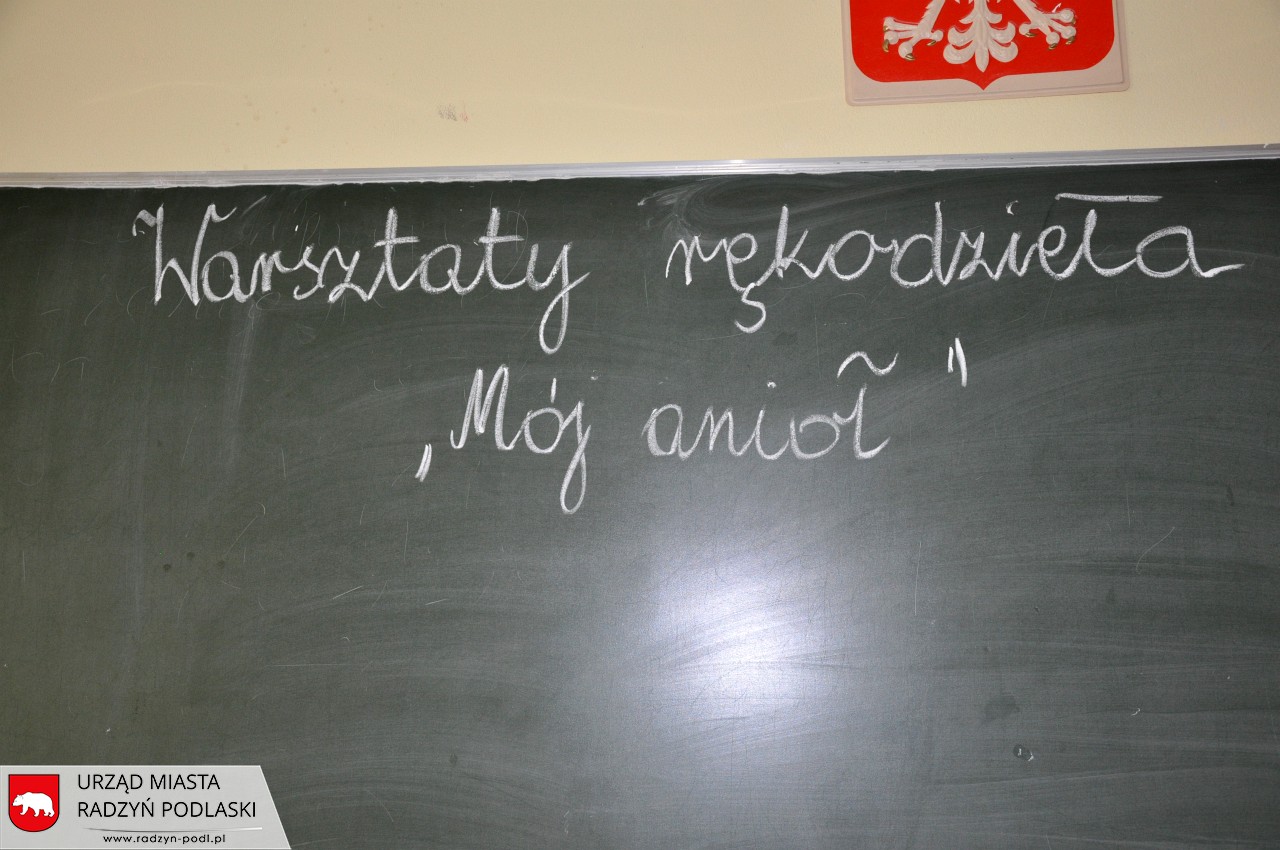 Warsztaty rękodzieła
„Mój anioł"
URZĄD MIASTA
RADZYŃ PODLASKI
www.radzyn-podl.pl